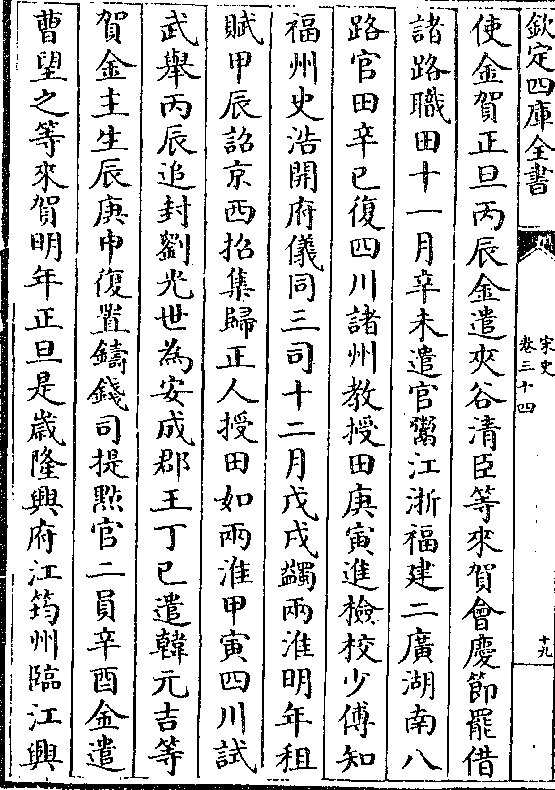 欽定四庫全書
宋史
卷三十四
十九
使金賀正旦丙辰金遣夾谷清臣等來賀會慶節罷借
諸路職田十一月辛未遣官鬻江浙福建二廣湖南八
路官田辛巳復四川諸州教授田庚寅進檢校少傅知
福州史浩開府儀同三司十二月戊戌蠲兩淮明年租
賦甲辰詔京西招集歸正人授田如兩淮甲寅四川試
武舉丙辰追封劉光世為安成郡王丁巳遣韓元吉等
賀金主生辰庚申復置鑄錢司提㸃官二員辛酉金遣
曹望之等來賀明年正旦是歲隆興府江筠州臨江興